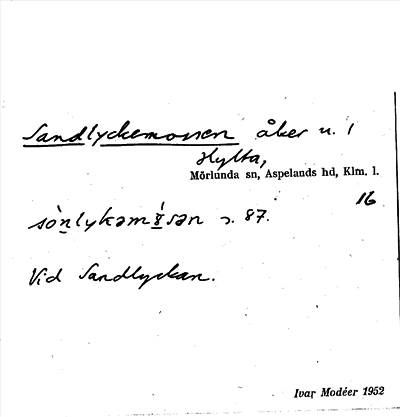 Sandlyckemossen åker u. 1
Hylta,
Mörlunda sn, Aspelands hd, Klm. l.
16
87.
Vid Sandlyckan.
Ivar Modéer 1952